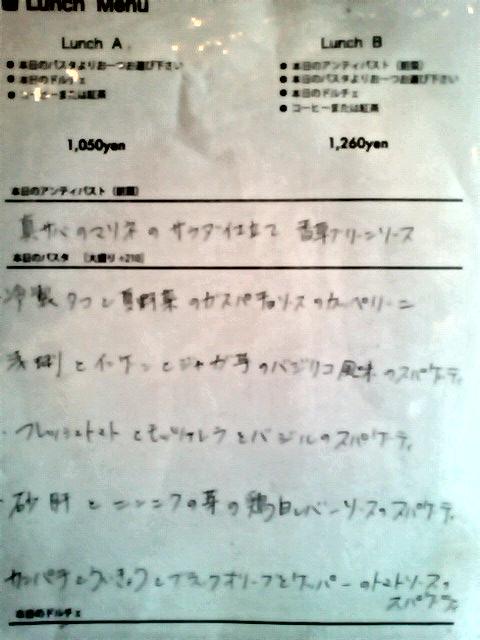 Lunch Menu
Lunch A
● 本日のパスタよりお一つお選び下さい
● 本日のドルチェ
● コーヒーまたは紅茶
1,050yen
Lunch B
● 本日のアンティパスト（前菜）
● 本日のパスタよりお一つお選び下さい
● 本日のドルチェ
● コーヒーまたは紅茶
1,260yen
本日のアンティパスト（前菜）
真サバのマリネのサラダ仕立て 香草グリーンソース
本日のパスタ （大盛り+210）
冷製 タコと夏野菜のガスパチョソースのカッペリーニ
浅利とインゲンとジャガ芋のバジリコ風味のスパゲティ
フレッシュトマトとモッツァレラとバジルのスパゲティ
砂肝とニンニクの芽の鶏白レバーソースのスパゲティ
カンパチとういきょうとブラックオリーブとケッパーのトマトソースの
スパゲティ
本日のドルチェ